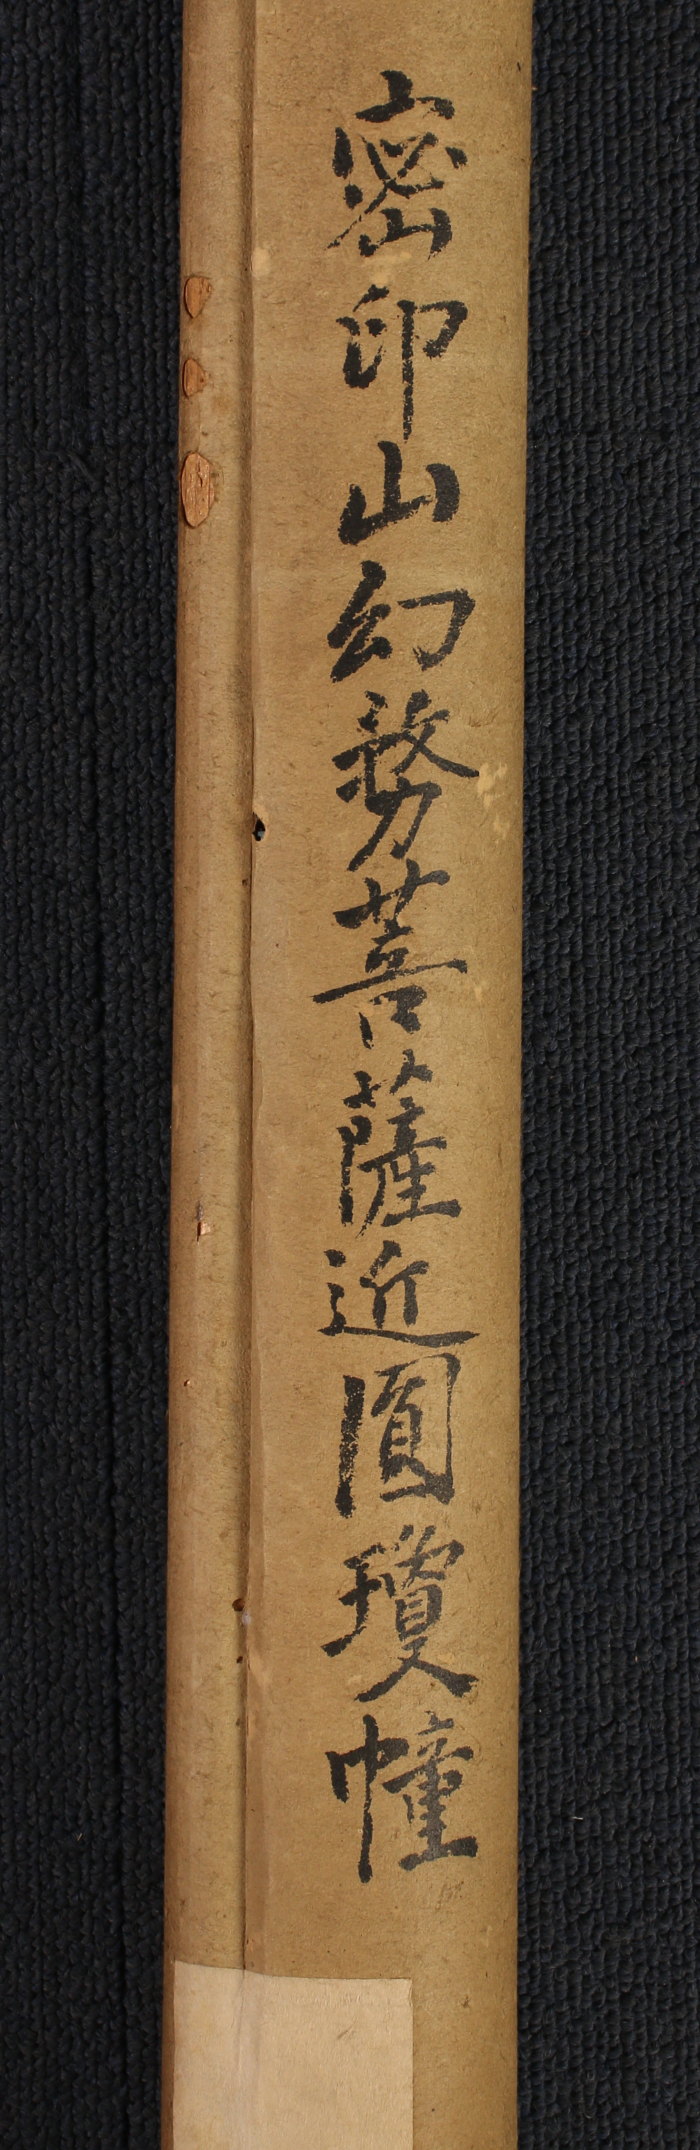 密印山幻務菩薩近圓瓊幢